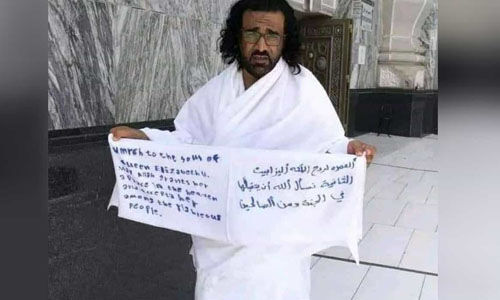 Umrah to the soul of
Queen Elizabeth II,
May Allah grants her
a place in the heaven
and accepts her
among the righteous
people.
العمره لروح الملكه اليزابيث
الثانية نسأل الله ان يتقبلها
في الجنة ومن الصالحين